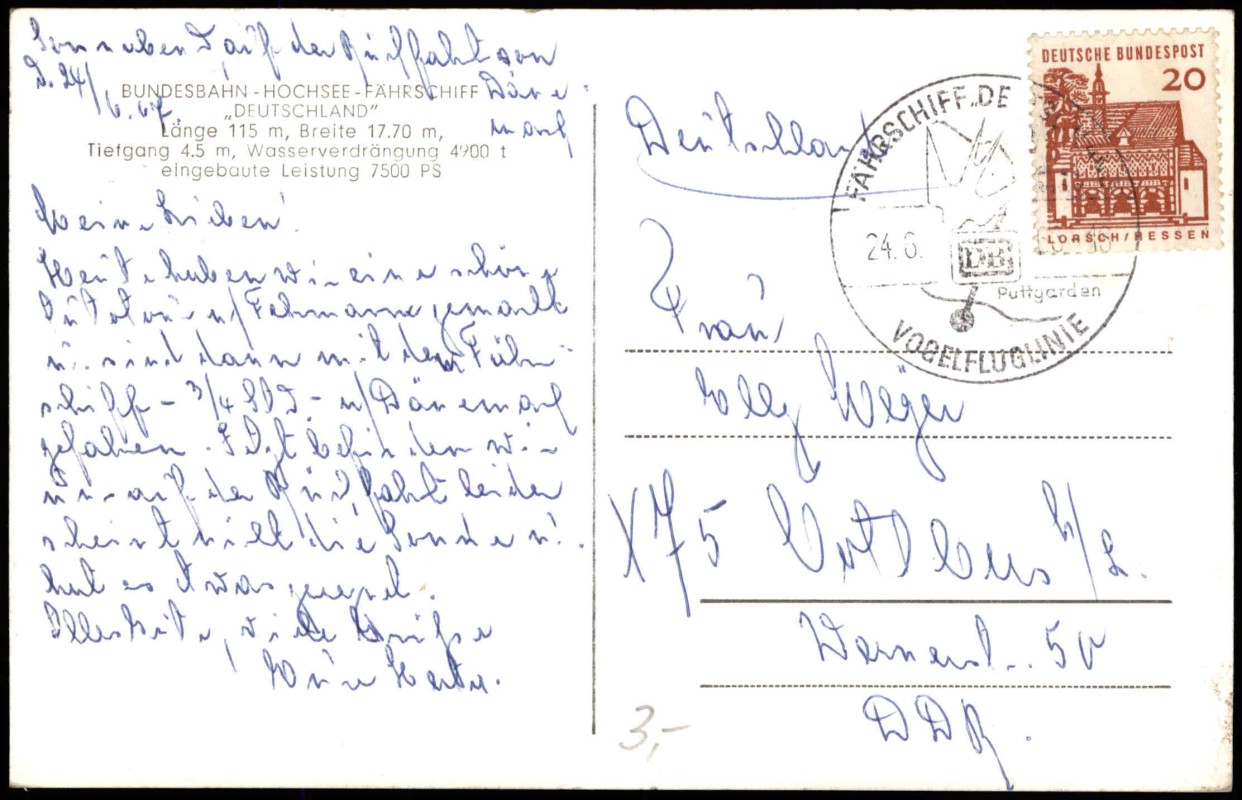 Sonnabend auf der Rückfahrt von
D. 24/6.67. Däne-
mark
BUNDESBAHN-HOCHSEE-FÄHRSCHIFF
„DEUTSCHLAND"
Länge 115 m, Breite 17.70 m,
Tiefgang 4.5 m, Wasserverdrängung 4900 t
eingebaute Leistung 7500 PS
Meine Lieben!
Heute haben wir eine schöne
n/ Fehmarn gemacht
u. sind dann mit dem Fähr-
schiff - 3/4 Std - n/ Dänemark
gefahren. Jetzt befinden wir
uns auf der Rückfahrt leider
scheint nicht die Sonne u.
hat es etwas geregnet.
Alles Gute, viele Grüße
Käte.
Deutschland
Frau
Elly Weger
X75 Cottbus N/L.
Wernerstr. 50
DDR.
3,-
DEUTSCHE BUNDESPOST
20
LORSCH/HESSEN
FÄHRSCHIFF „DE
24.6.
DB
Puttgarden
VOGELFLUGLINIE